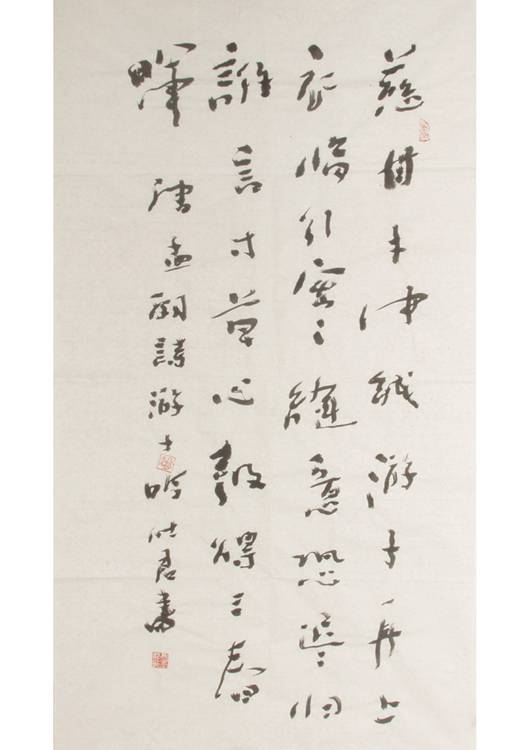 慈母手中线游子身上
衣临行密〻縫意恐遲〻归
誰言寸草心報得三春
暉 唐孟郊詩游子吟 君書